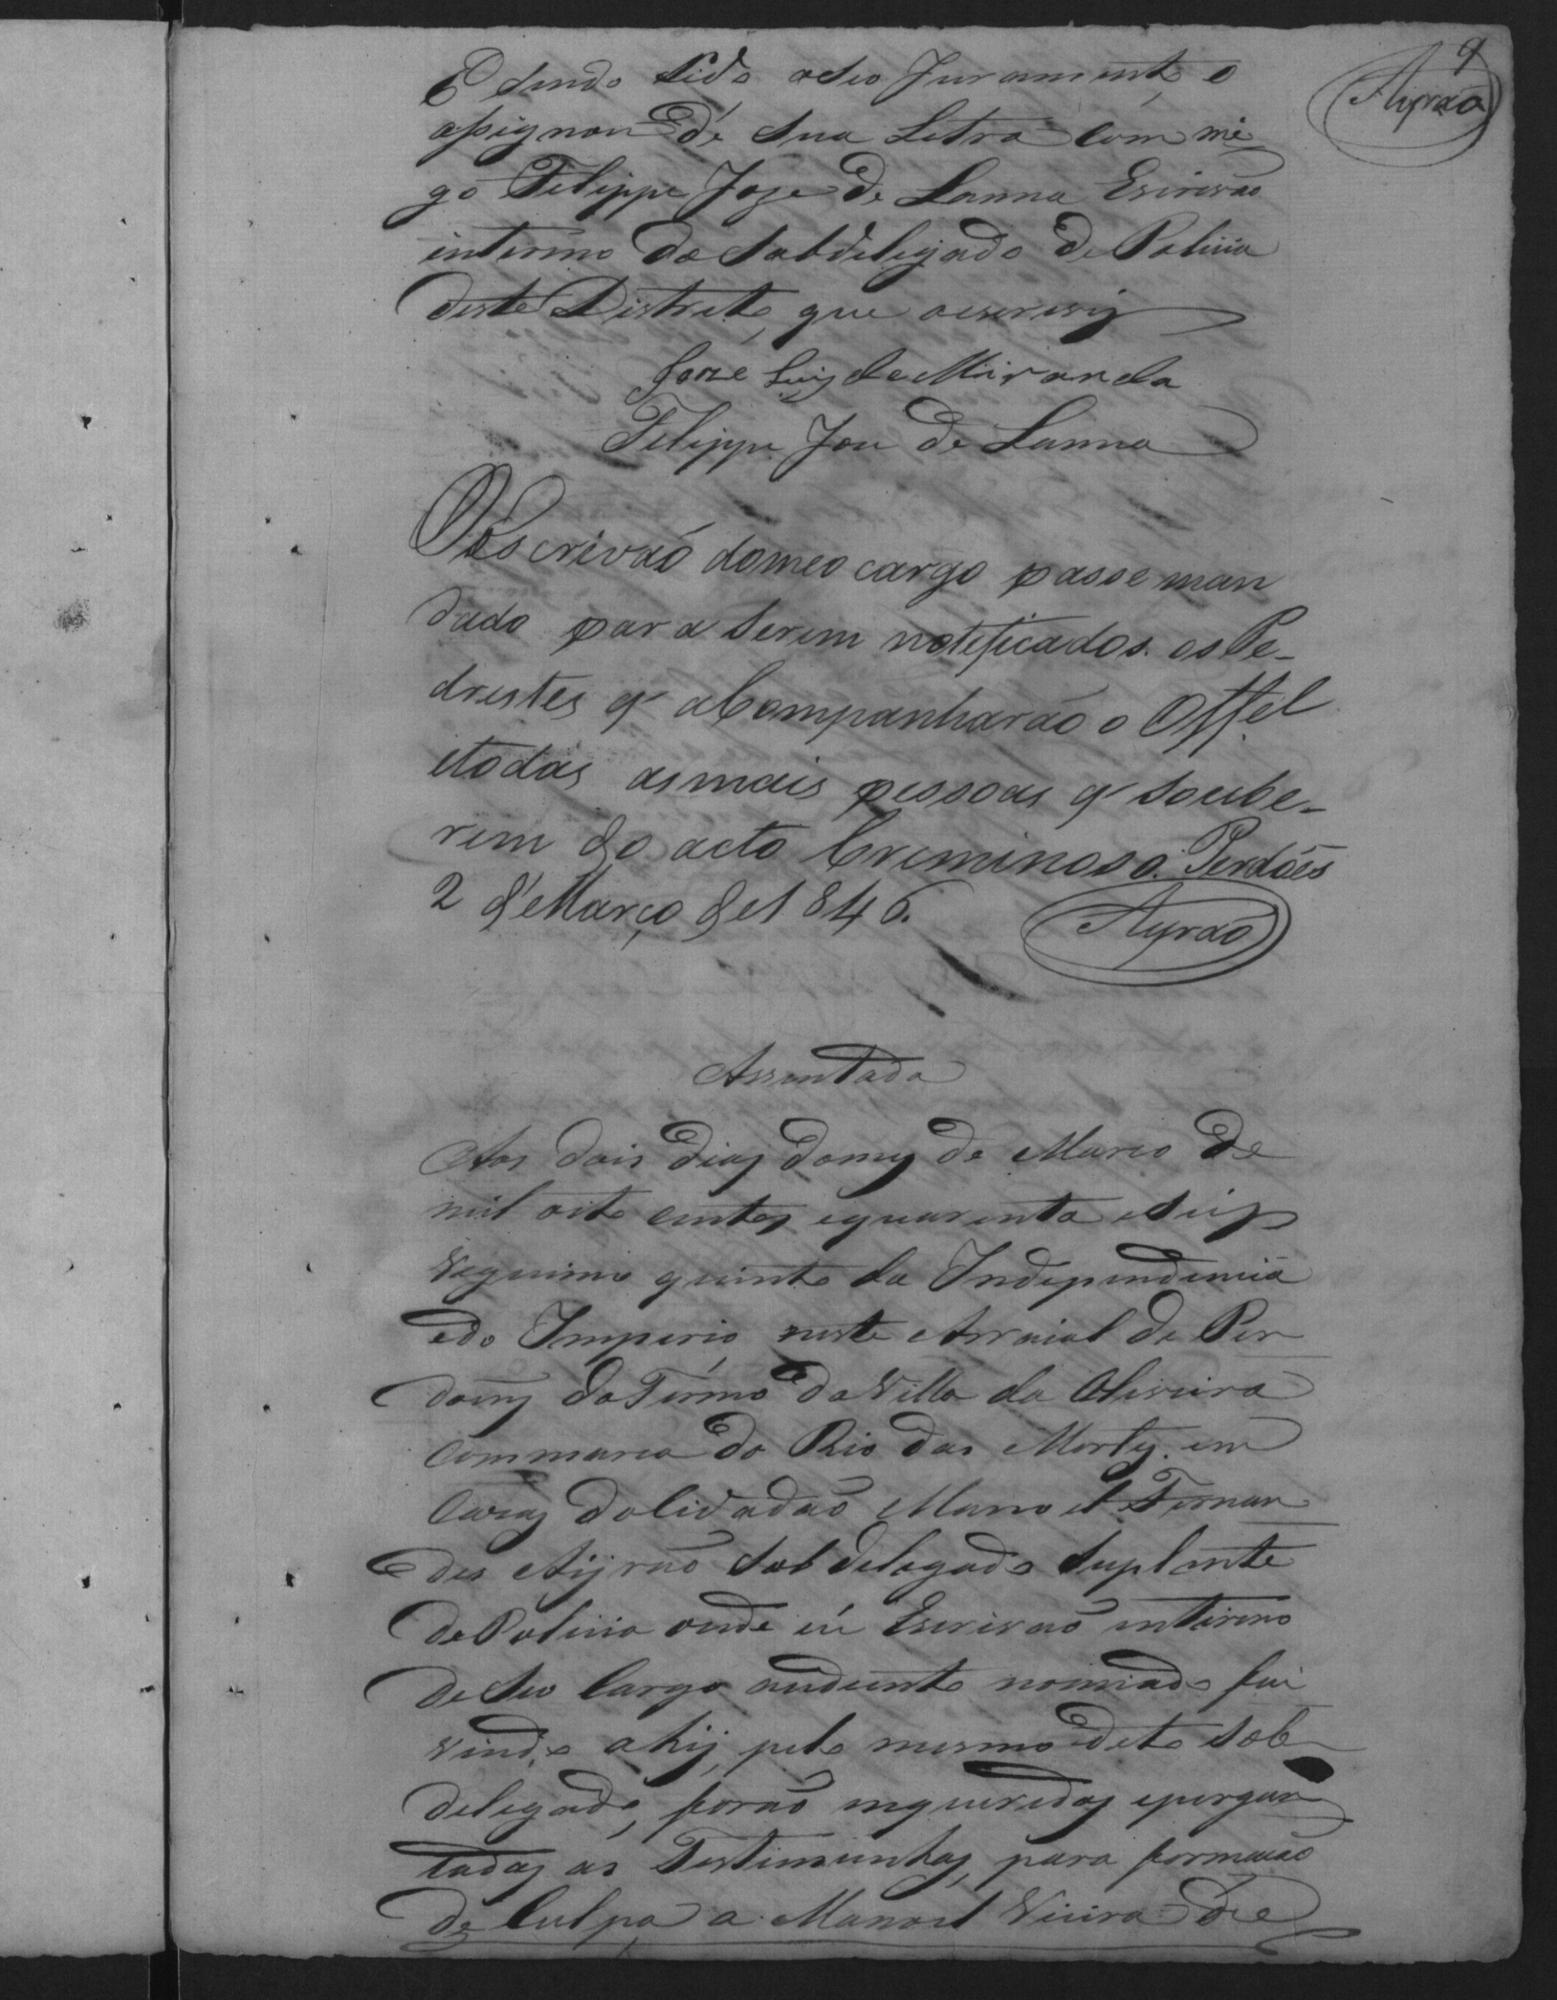 9
Ayrão
E sendo lido o seo Juramento o
assignou de sua Letra com mi
go Felippe Joze de Lanna Escrivão
interino do Subdelegado de Policia
deste Destrito que o escrevij
Joze Luiz de Miranda
Felippe Joze de Lanna
O Escrivaõ do meo cargo passe man
dado para serem notificados os Pe-
drestes q' acompanharão o Offel
e todas as mais pessoas q' soube-
rem do acto Creminoso. Perdões
2 de Março de 1846.
Ayrão
Assentada
Aos dois dias do mez de Marco de
mil oito centos e quarenta e seis
Vegecimo quinto da Independencia
e do Imperio neste Arraial de Per
doens do Termo da Villa da Oliveira
Commarca do Rio das Mortes em
Cazas do Cidadão Manoel Fernan
des Aijrão Sobdelegado Suplente
de Policia onde eu Escrivão interino
de seo Cargo audiente nomiado fui
vindo ahij pelo mesmo dito Sob
delegado, forão inqueridas e pergun
tadas as Testimunhas, para formacão
de Culpa a Manoel Vieira de